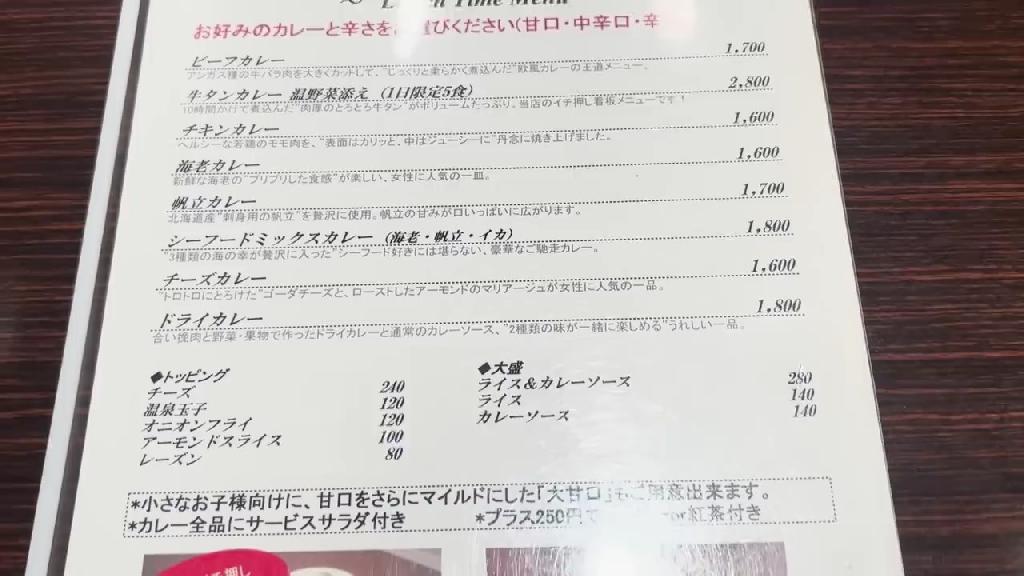 Menu
お好みのカレーと辛さをお選びください(甘口・中辛口・辛
ビーフカレー 1,700
アンガス種の牛バラ肉を大きくカットして、"じっくりと柔らかく煮込んだ"欧風カレーの王道メニュー。
牛タンカレー 温野菜添え (1日限定5食) 2,800
10時間かけて煮込んだ"肉厚のとろとろ牛タン"がボリュームたっぷり。当店のイチ押し看板メニューです!
チキンカレー 1,600
ヘルシーな若鶏のモモ肉を、"表面はカリッと、中はジューシーに"丹念に焼き上げました。
海老カレー 1,600
新鮮な海老の"プリプリした食感"が楽しい、女性に人気の一皿。
帆立カレー 1,700
北海道産"刺身用の帆立"を贅沢に使用。帆立の甘みが口いっぱいに広がります。
シーフードミックスカレー (海老・帆立・イカ) 1,800
"3種類の海の幸が贅沢に入った"シーフード好きには堪らない、豪華なご馳走カレー。
チーズカレー 1,600
"トロトロにとろけた"ゴーダチーズと、ローストしたアーモンドのマリアージュが女性に人気の一品。
ドライカレー 1,800
合い挽肉と野菜・果物で作ったドライカレーと通常のカレーソース、"2種類の味が一緒に楽しめる"うれしい一品。
◆トッピング
チーズ 240
温泉玉子 120
オニオンフライ 120
アーモンドスライス 100
レーズン 80
◆大盛
ライス&カレーソース 280
ライス 140
カレーソース 140
*小さなお子様向けに、甘口をさらにマイルドにした「大甘口」もご用意出来ます。
*カレー全品にサービスサラダ付き *プラス250円で or紅茶付き
押し